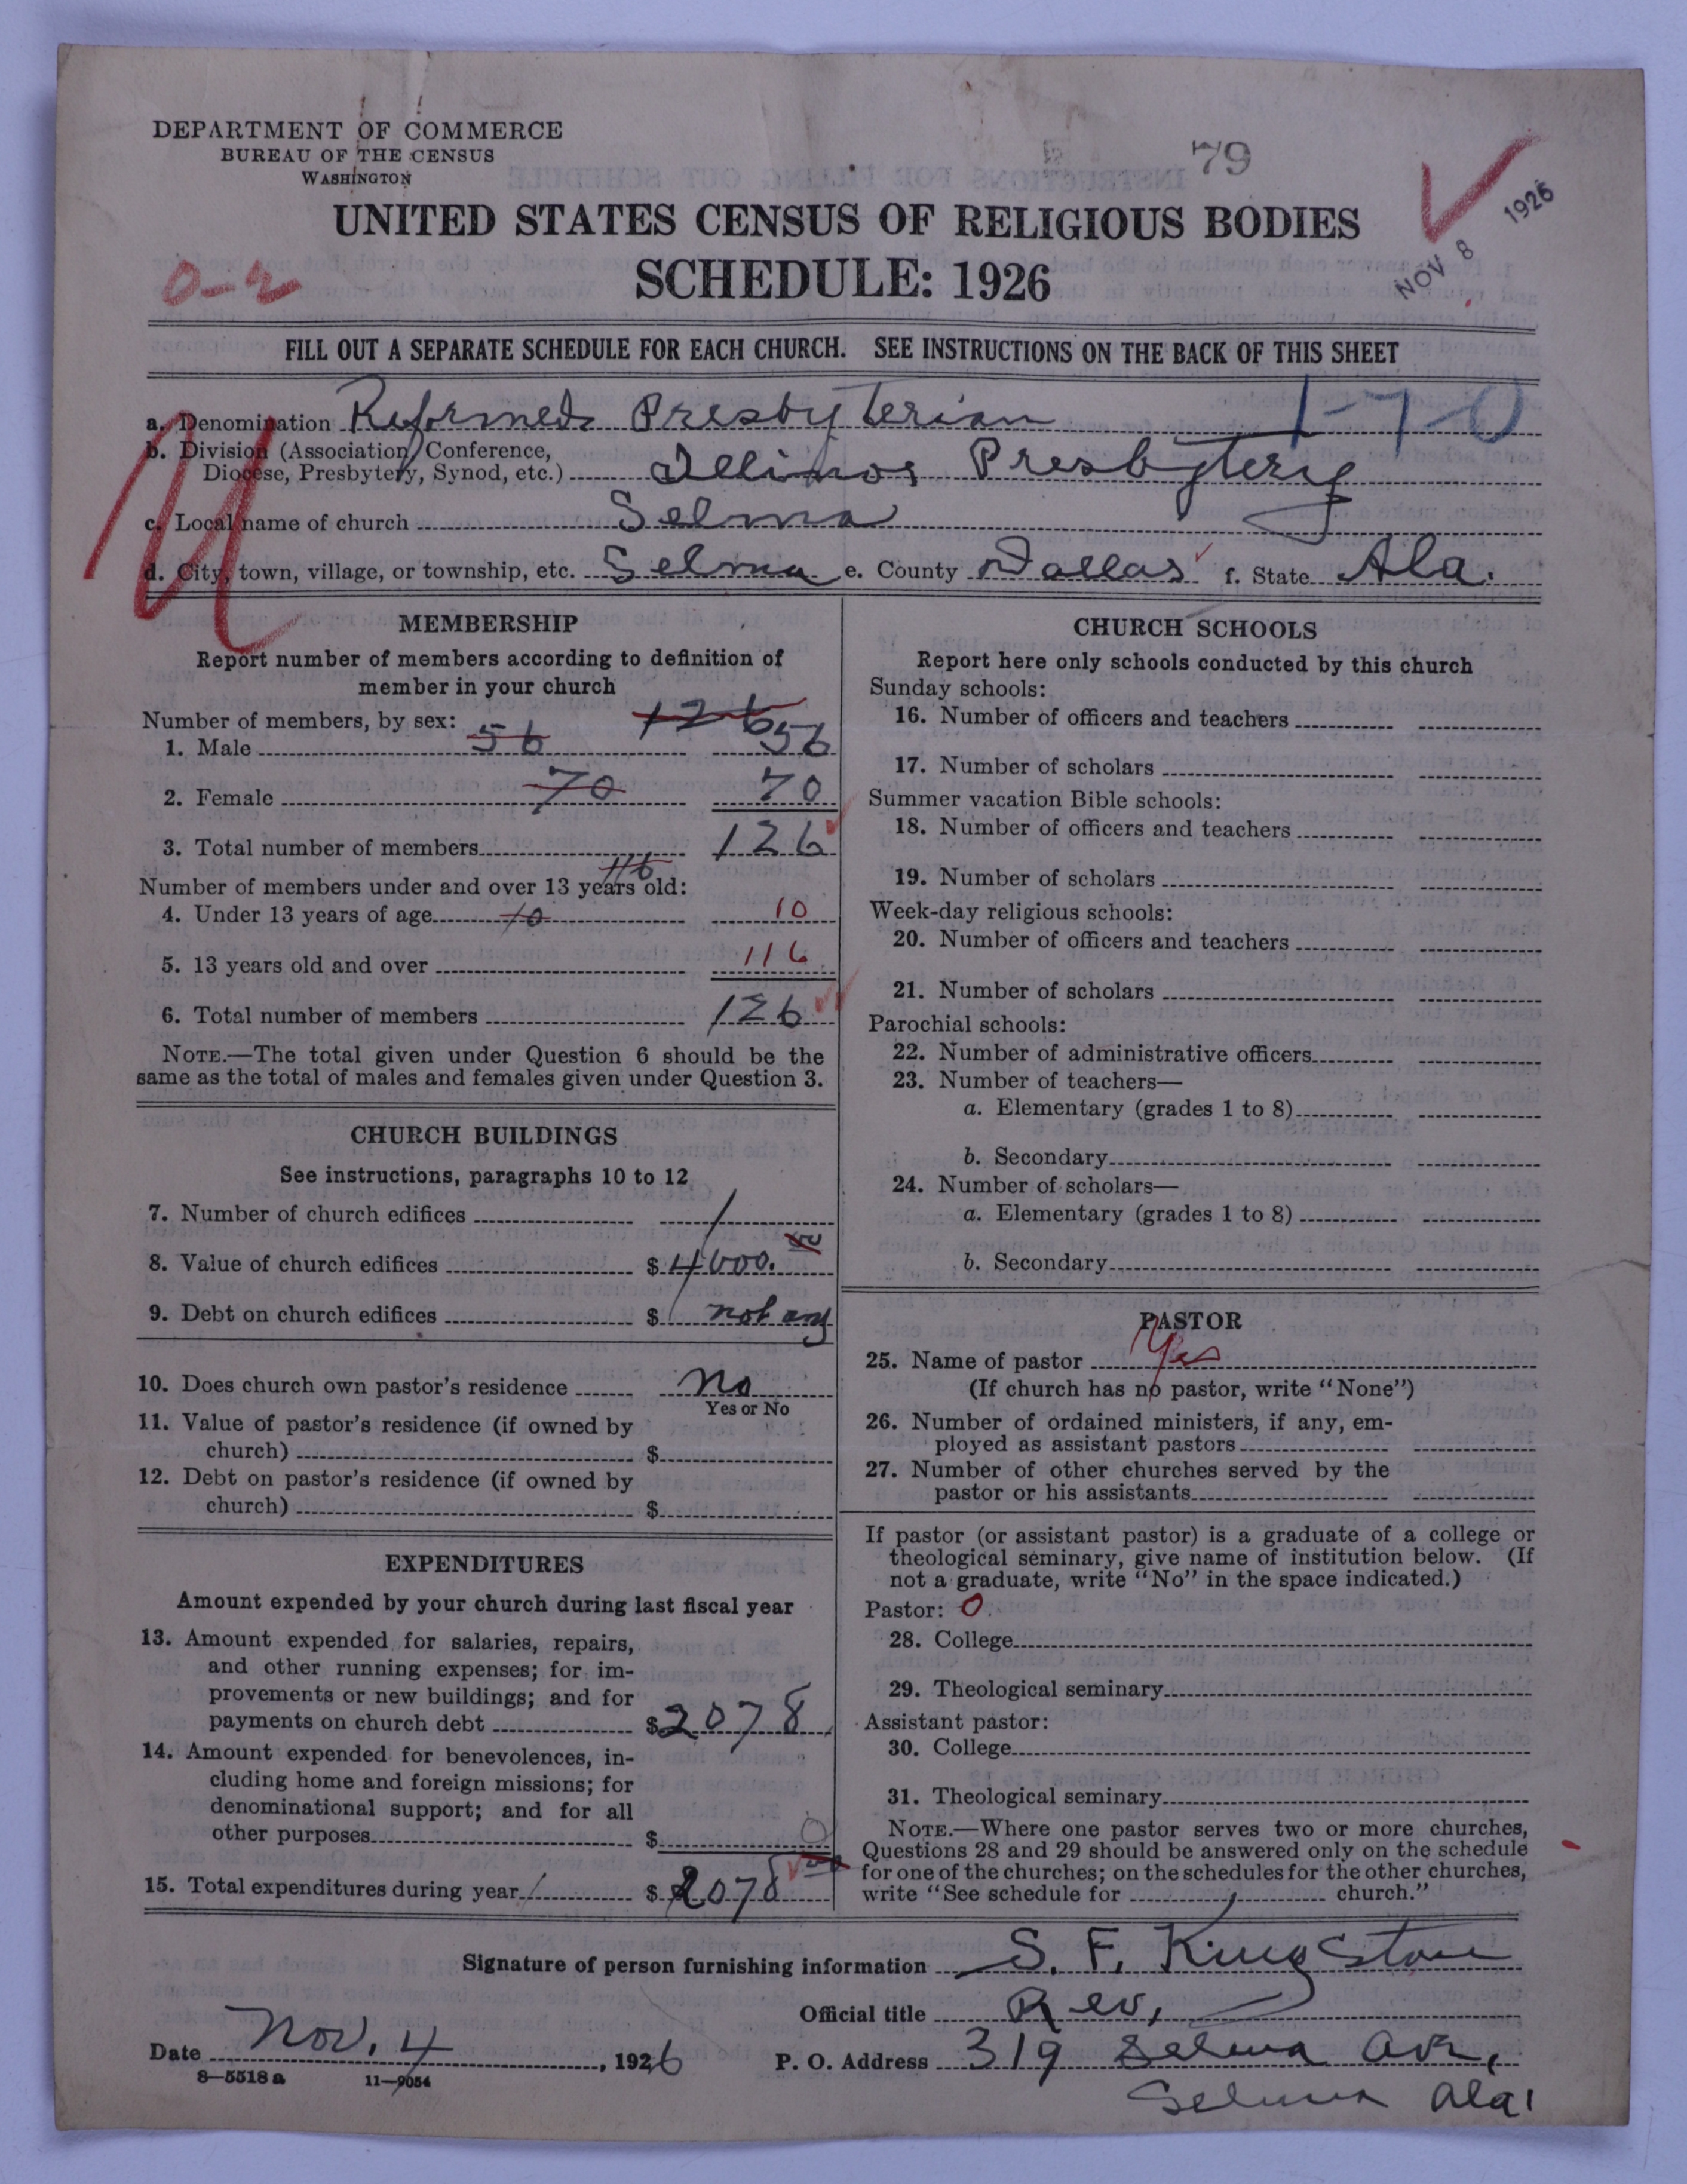 DEPARTMENT OF COMMERCE
BUREAU OF THE CENSUS
WASHINGTON
79
NOV 8 1926
UNITED STATES CENSUS OF RELIGIOUS BODIES
SCHEDULE: 1926
0-2
FILL OUT A SEPARATE SCHEDULE FOR EACH CHURCH. SEE INSTRUCTIONS ON THE BACK OF THIS SHEET
a. Denomination Reformed Presbyterian 1-7-0
b. Division (Association, Conference,
Diocese, Presbytery, Synod, etc.) Illinois Presbytery
c. Local name of church Selma
d. City, town, village, or township, etc. Selma e. County Dallas f. State Ala.
MEMBERSHIP
Report number of members according to definition of
member in your church
Number of members, by sex: 126
1. Male 56 56
2. Female 70 70
3. Total number of members 126
116
Number of members under and over 13 years old:
4. Under 13 years of age 10 10
5. 13 years old and over 116
6. Total number of members 126
NOTE.—The total given under Question 6 should be the
same as the total of males and females given under Question 3.
CHURCH BUILDINGS
See instructions, paragraphs 10 to 12
7. Number of church edifices 1
8. Value of church edifices $ 4000. 00
9. Debt on church edifices $ not any
10. Does church own pastor's residence no
Yes or No
11. Value of pastor's residence (if owned by
church) $
12. Debt on pastor's residence (if owned by
church) $
EXPENDITURES
Amount expended by your church during last fiscal year
13. Amount expended for salaries, repairs,
and other running expenses; for im-
provements or new buildings; and for
payments on church debt $ 2078
14. Amount expended for benevolences, in-
cluding home and foreign missions; for
denominational support; and for all
other purposes $ 0
15. Total expenditures during year $ 2078
CHURCH SCHOOLS
Report here only schools conducted by this church
Sunday schools:
16. Number of officers and teachers
17. Number of scholars
Summer vacation Bible schools:
18. Number of officers and teachers
19. Number of scholars
Week-day religious schools:
20. Number of officers and teachers
21. Number of scholars
Parochial schools:
22. Number of administrative officers
23. Number of teachers—
a. Elementary (grades 1 to 8)
b. Secondary
24. Number of scholars—
a. Elementary (grades 1 to 8)
b. Secondary
PASTOR
25. Name of pastor Yes
(If church has no pastor, write "None")
26. Number of ordained ministers, if any, em-
ployed as assistant pastors
27. Number of other churches served by the
pastor or his assistants
If pastor (or assistant pastor) is a graduate of a college or
theological seminary, give name of institution below. (If
not a graduate, write "No" in the space indicated.)
Pastor: 0
28. College
29. Theological seminary
Assistant pastor:
30. College
31. Theological seminary
NOTE.—Where one pastor serves two or more churches,
Questions 28 and 29 should be answered only on the schedule
for one of the churches; on the schedules for the other churches,
write "See schedule for church."
Signature of person furnishing information S. F. Kingston
Official title Rev,
Date Nov. 4, 1926 P. O. Address 319 Selma Ave,
8-5518 a 11-9054
Selma Ala